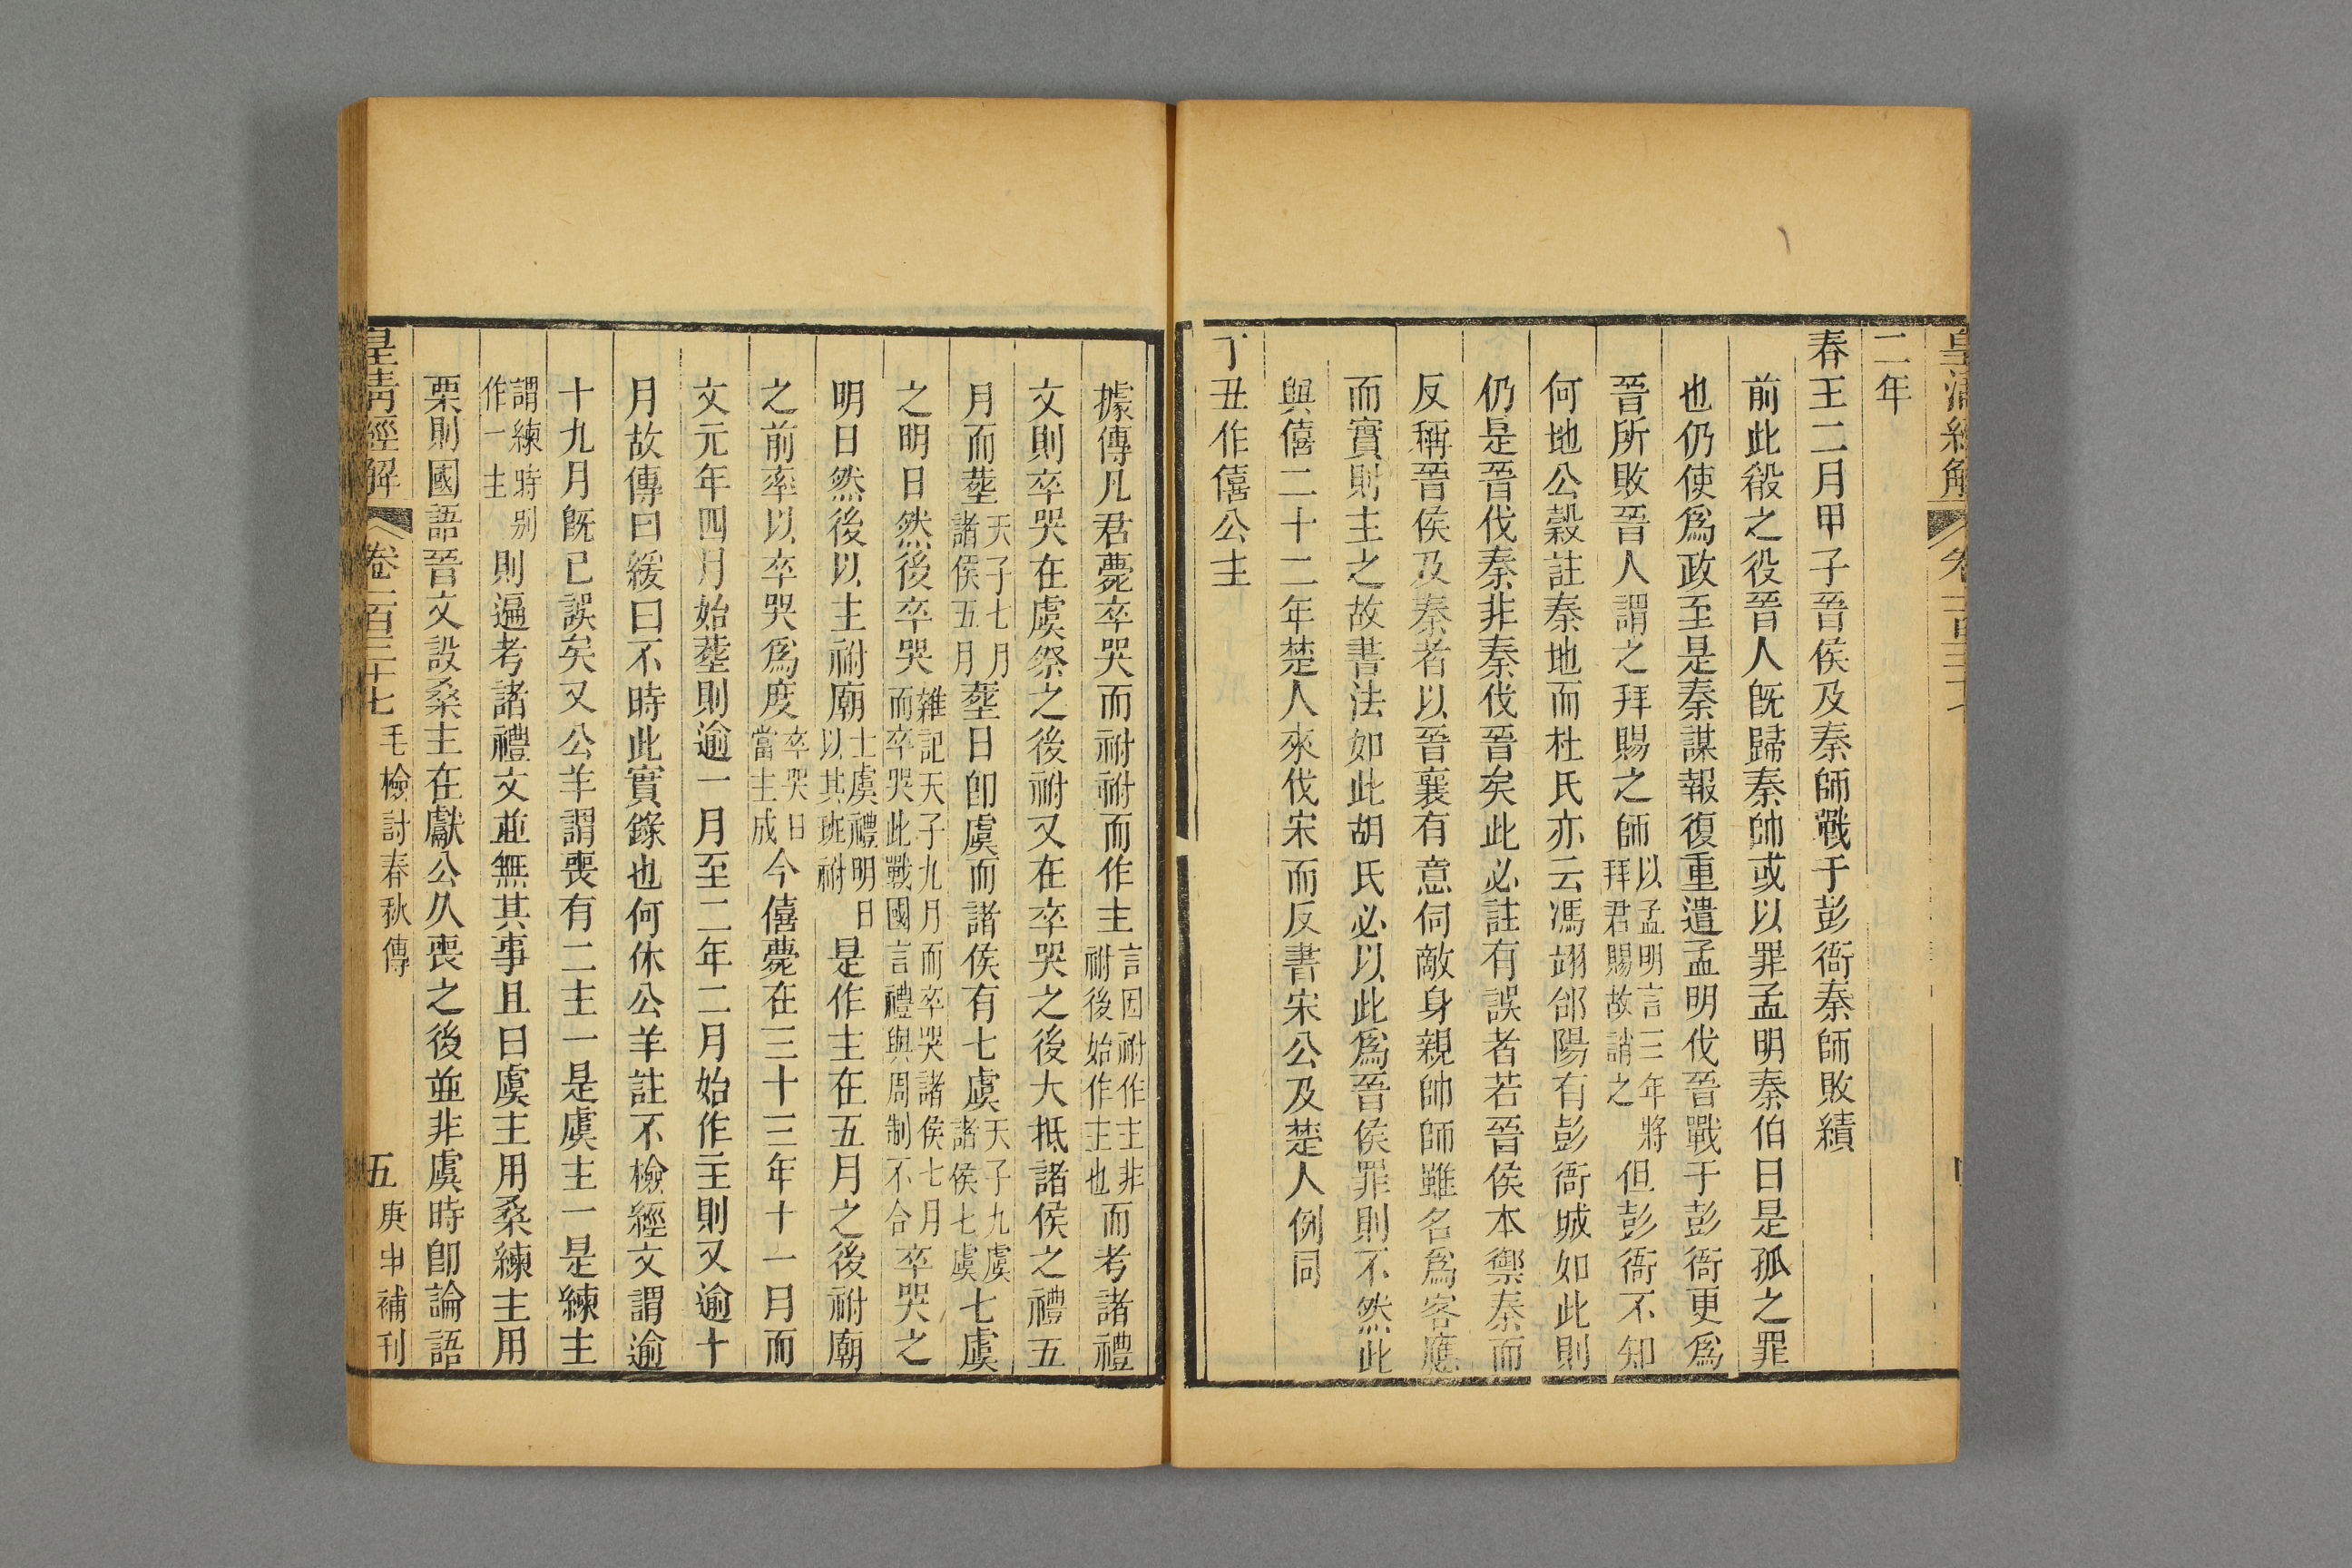 皇清經解 卷一百三十七
二年
春王二月甲子晉侯及秦師戰于彭衙秦師敗績
前此殽之役晉人既歸秦帥或以罪孟明秦伯曰是孤之罪
也仍使爲政至是秦謀報復重遣孟明伐晉戰于彭衙更爲
晉所敗晉人謂之拜賜之師以孟明言三年將拜君賜故誚之但彭衙不知
何地公穀註秦地而杜氏亦云馮翊郃陽有彭衙城如此則
仍是晉伐秦非秦伐晉矣此必註有誤者若晉侯本禦秦而
反稱晉侯及秦者以晉襄有意伺敵身親帥師雖名爲客應
而實則主之故書法如此胡氏必以此爲晉侯罪則不然此
與僖二十二年楚人來伐宋而反書宋公及楚人例同
丁丑作僖公主
據傳凡君薨卒哭而祔祔而作主言因祔作主非祔後始作主也而考諸禮
文則卒哭在虞祭之後祔又在卒哭之後大抵諸侯之禮五
月而葬天子七月諸侯五月葬日卽虞而諸侯有七虞天子九虞諸侯七虞七虞
之明日然後卒哭雜記天子九月而卒哭諸侯七月而卒哭此戰國言禮與周制不合卒哭之
明日然後以主祔廟士虞禮明日以其班祔是作主在五月之後祔廟
之前率以卒哭爲度卒哭日當主成今僖薨在三十三年十一月而
文元年四月始葬則逾一月至二年二月始作主則又逾十
月故傳曰緩曰不時此實錄也何休公羊註不檢經文謂逾
十九月既已誤矣又公羊謂喪有二主一是虞主一是練主
謂練時别作一主則遍考諸禮文並無其事且曰虞主用桑練主用
栗則國語晉文設桑主在獻公久喪之後並非虞時卽論語
皇清經解 卷一百三十七 毛檢討春秋傳 五 庚申補刊